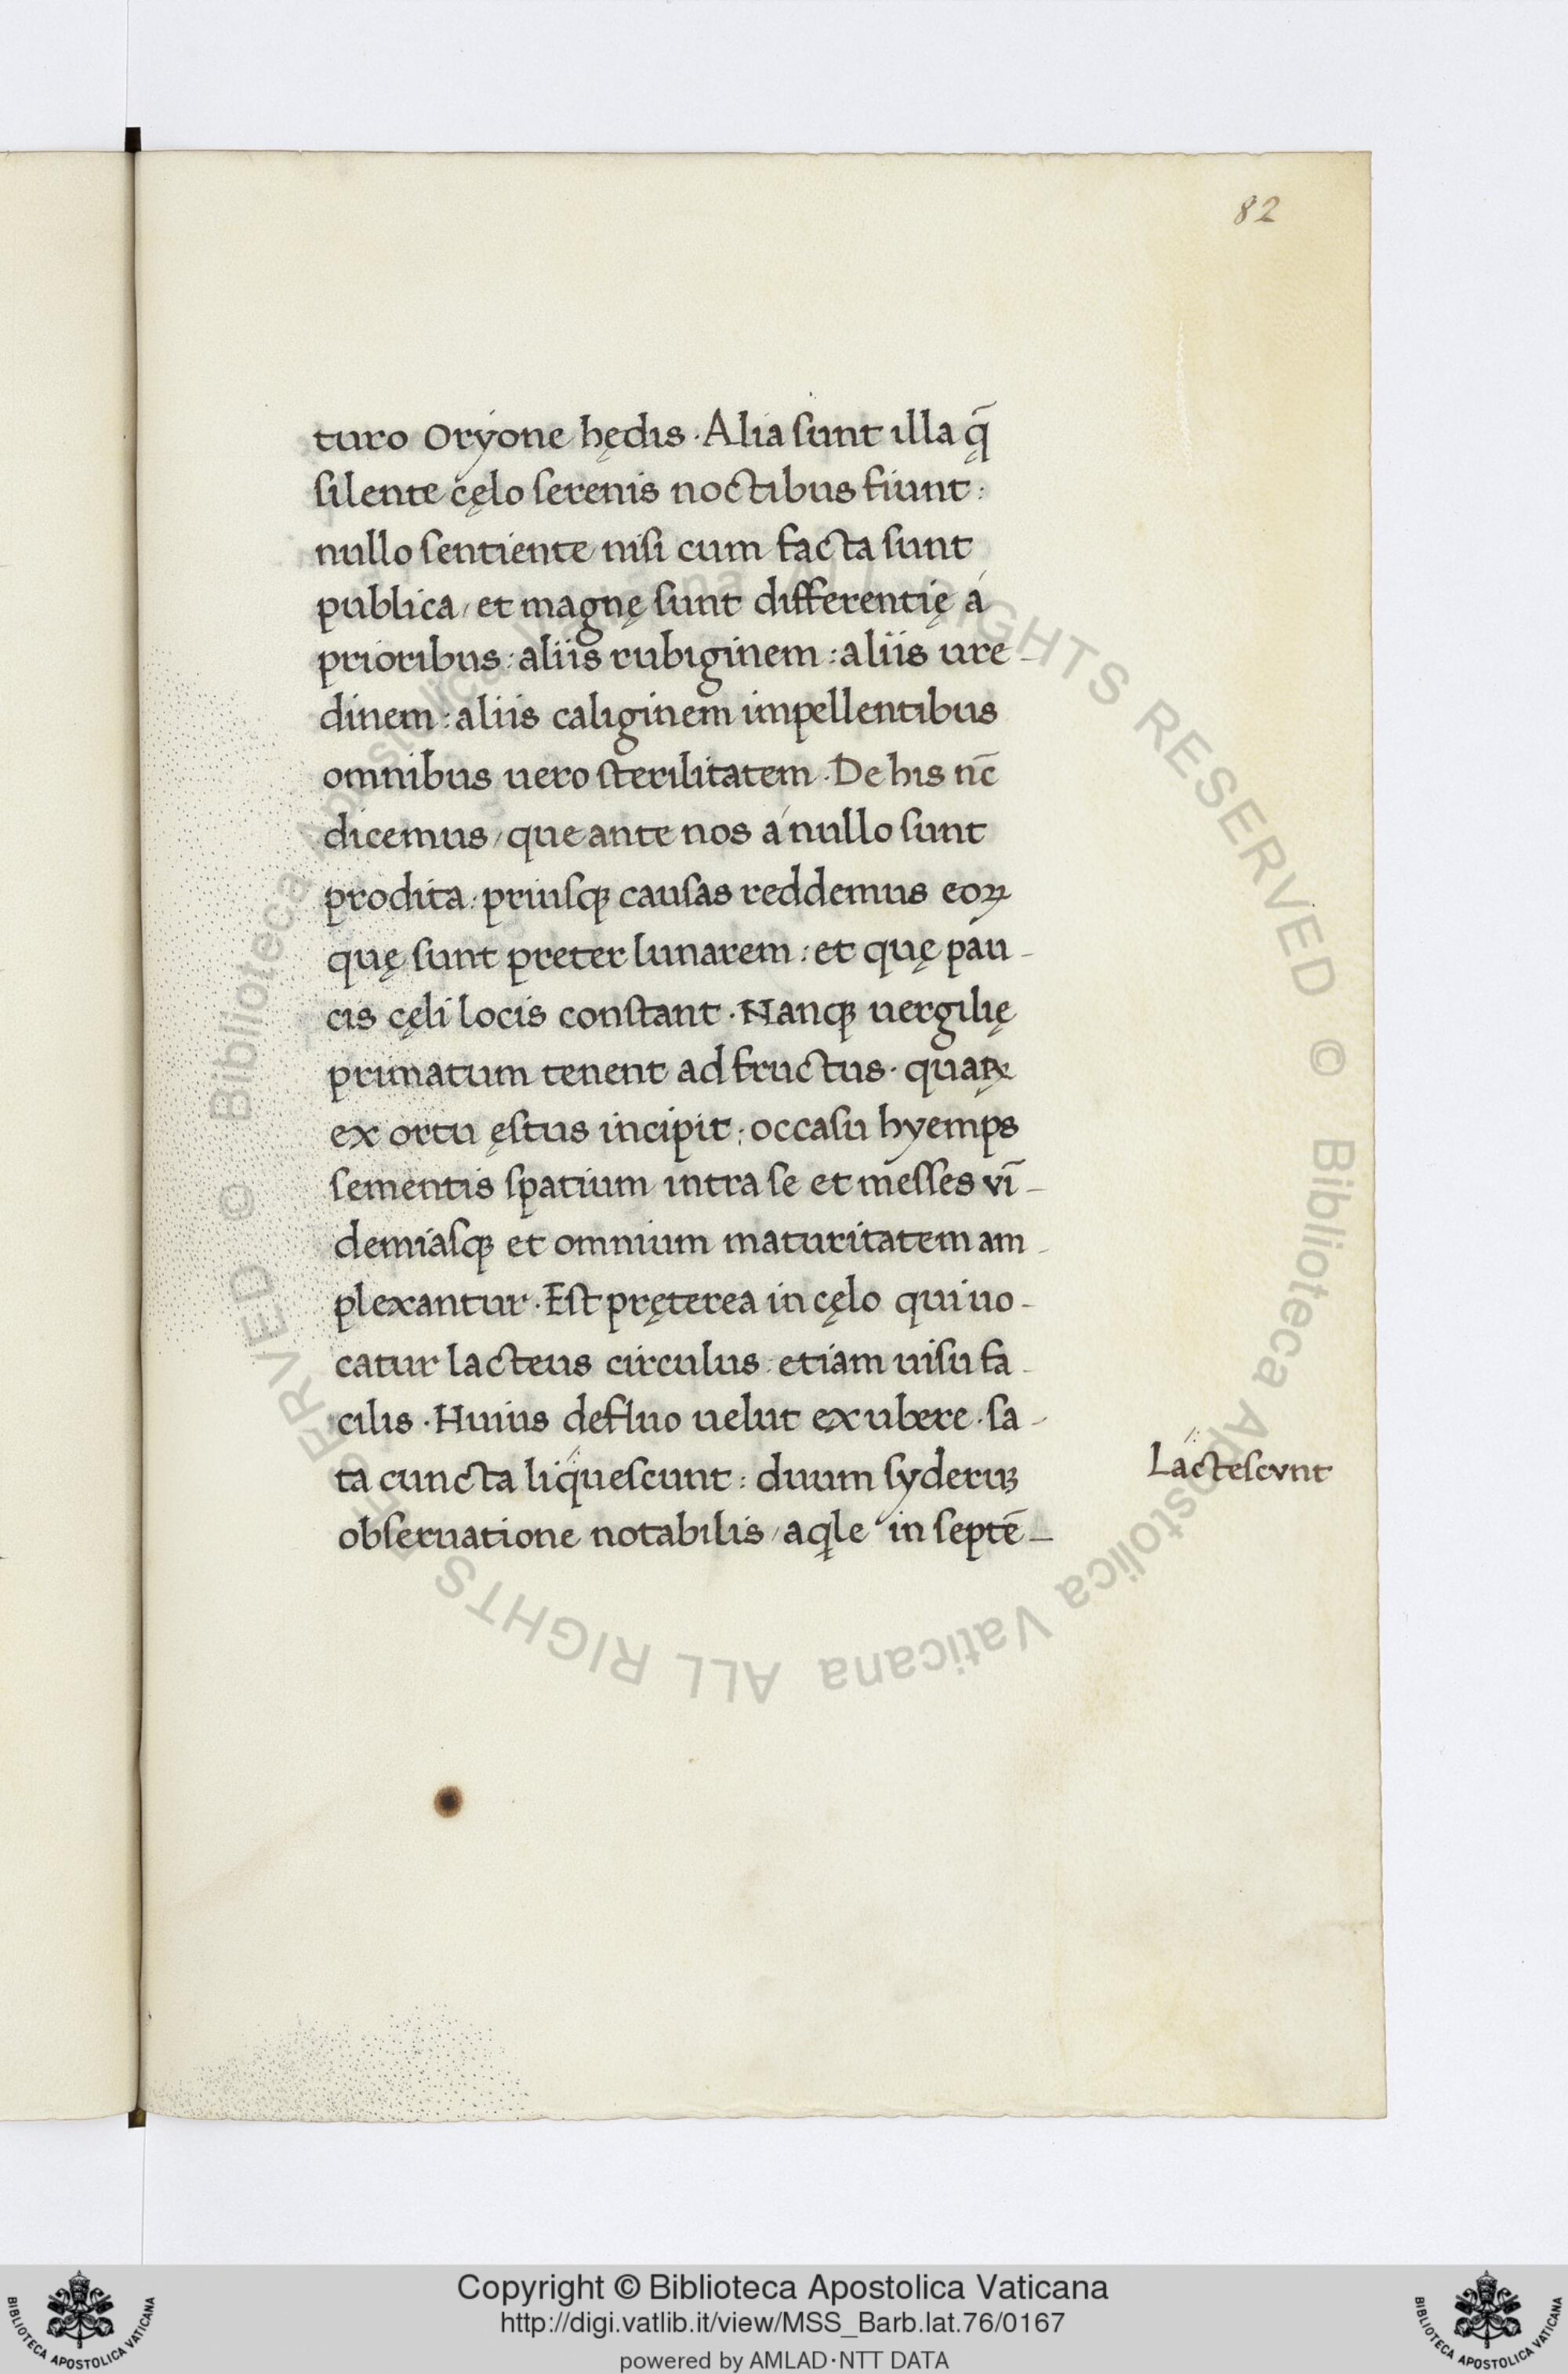 82
turo Oryone hędis · Alia sunt illa q̨̄
silente cęlo serenis noctibus fiunt :
nullo sentiente nisi cum facta sunt
publica / et magnę sunt differentię á
prioribus : aliis rubiginem : aliis ure -
dinem : aliis caliginem impellentibus
omnibus uero sterilitatem · De his nc̄
dicemus / que ante nos á nullo sunt
prodita : priusqꝫ causas reddemus eoꝝ
quę sunt preter lunarem : et quę pau -
cis cęli locis constant · Nanqꝫ uergilię
primatum tenent ad fructus · quaꝝ
ex ortu ęstus incipit : occasu hyemps
sementis spatium intra se et messes vī -
demiasqꝫ et omnium maturitatem am -
plexantur · Est pręterea in cęlo qui uo -
catur lacteus circulus : etiam uisu fa -
cilis · Huius defluo uelut ex ubere · sa -
ta cuncta liquescunt : duum syderuꝫ
Lactescvnt
obseruatione notabilis / aqle in septē -
© Biblioteca Apostolica Vaticana ALL RIGHTS RESERVED © Biblioteca Apostolica Vaticana ALL RIGHTS RESERVED
Copyright © Biblioteca Apostolica Vaticana
http://digi.vatlib.it/view/MSS_Barb.lat.76/0167
powered by AMLAD·NTT DATA
BIBLIOTECA APOSTOLICA VATICANA
BIBLIOTECA APOSTOLICA VATICANA